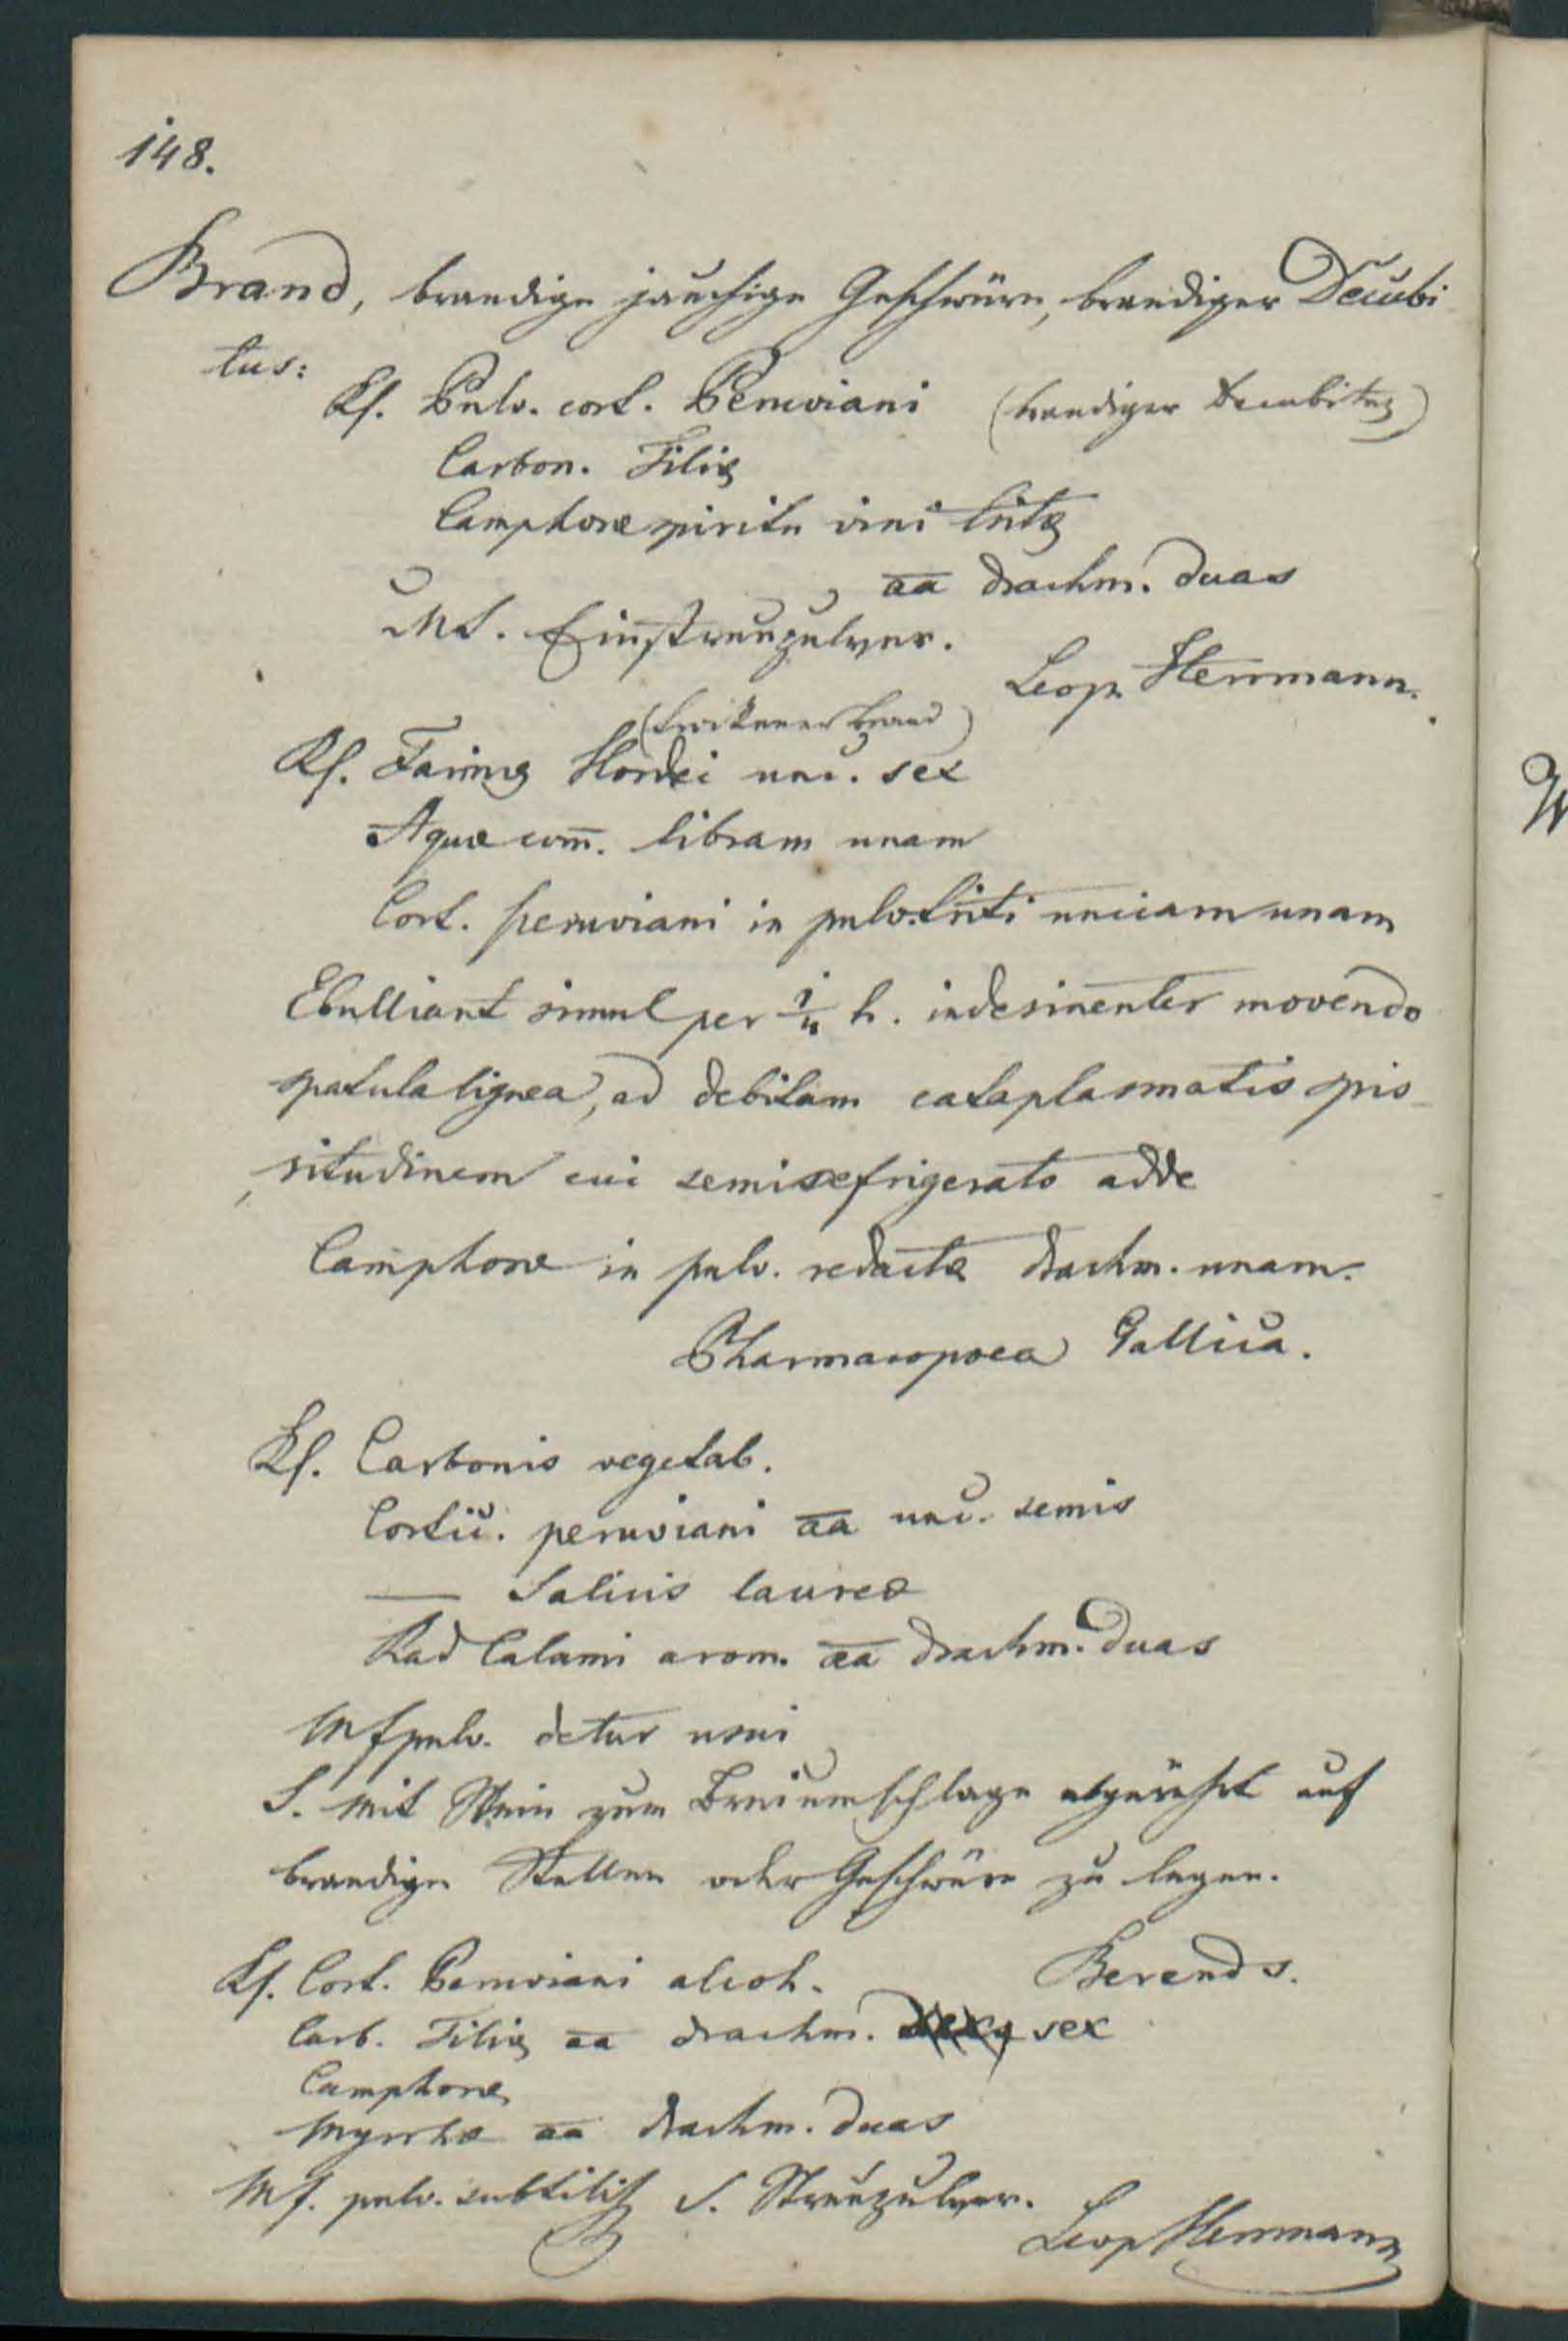 148.
Brand, brandige jauchige Geschwüre, brandiger Decubi
tus:
Rf. Pulv. cort. Peruviani (brandiger Decubitus)
Carbon. Tiliæ
Camphoræ spiritu vini tritæ
aa drachm. duas
MS. Einstreupulver.
Leop. Herrmann.
(trockener Brand)
Rf. Farinæ Hordei unc. sex
Aquæ com̅. libram unam
Cort. peruviani in pulv. triti unciam unam
Ebulliant simul per 1/4 h. indesinenter movendo
spatula lignea, ad debitam cataplasmatis spis-
situdinem cui semirefrigerato adde
Camphoræ in pulv. redactæ drachm. unam.
Pharmacopoea Gallica.
Rf. Carbonis vegetab.
Cortic. peruviani aa unc. semis
— Salicis laureæ
Rad Calami arom. aa drachm. duas
Mfpulv. detur usui
S. mit Wein zum Breiumschlage abgerührt auf
brandige Stellen oder Geschwüre zu legen.
Berends.
Rf. Cort. Peruviani alcoh.
Carb. Tiliæ aa drachm. sex
Camphoræ
Myrrhæ aa drachm. duas
Mf. pulv. subtilis S. Streupulver.
Leop Herrmann